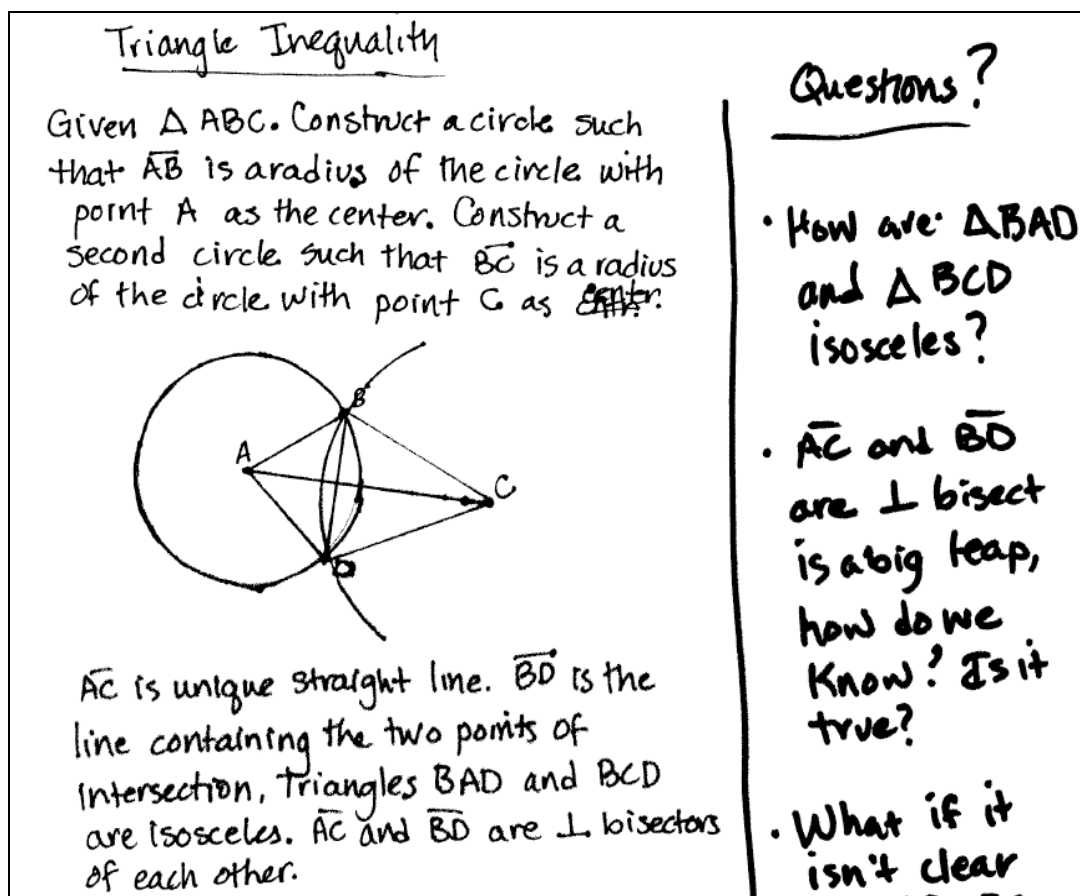 Triangle Inequality
Given Δ ABC. Construct a circle such
that A̅B̅ is a radius of the circle with
point A as the center. Construct a
second circle such that B̅C̅ is a radius
of the circle with point C as
A
B
C
D
A̅C̅ is unique straight line. B̅D̅ is the
line containing the two points of
intersection, Triangles BAD and BCD
are isosceles. A̅C̅ and B̅D̅ are ⊥ bisectors
of each other.
Questions?
• How are ΔBAD
and Δ BCD
isosceles?
• A̅C̅ and B̅D̅
are ⊥ bisect
is a big leap,
how do we
know? Is it
true?
• What if it
isn't clear